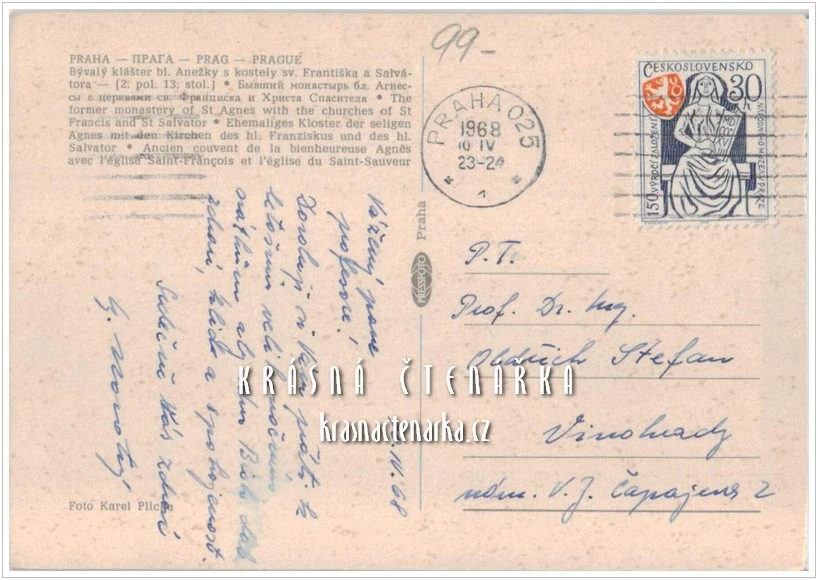 99-
PRAHA — ПРАГА — PRAG — PRAGUE
Bývalý klášter bl. Anežky s kostely sv. Františka a Salvá-
tora — (2. pol. 13. stol.) • Бывший монастырь бл. Агнес-
сы с церквами св. Франциска и Христа Спасителя • The
former monastery of St Agnes with the churches of St
Francis and St Salvator • Ehemaliges Kloster der seligen
Agnes mit den Kirchen des hl. Franziskus und des hl.
Salvator • Ancien couvent de la bienheureuse Agnès
avec l'église Saint-François et l'église du Saint-Sauveur
PRAHA 025
1968
10 IV
23-24
1
ČESKOSLOVENSKO
30h
150. VÝROČÍ ZALOŽENÍ
NÁRODNÍHO MUZEA V PRAZE
Vážený pane
profesore!
Dovoluji si Vám přáti k
letošním velikonočním
svátkům aby Vám Bůh dal
zdraví, klidu a spokojenost.
Srdečně Vás zdraví
Novotný
IV. 68
PRESSFOTO
Praha
P. T.
Prof. Dr. Ing.
Oldřich Stefan
Vinohrady
nám. V. J. Čapajeva 2
KRÁSNÁ ČTENÁŘKA
krasnactenarka.cz
Foto Karel Plicka